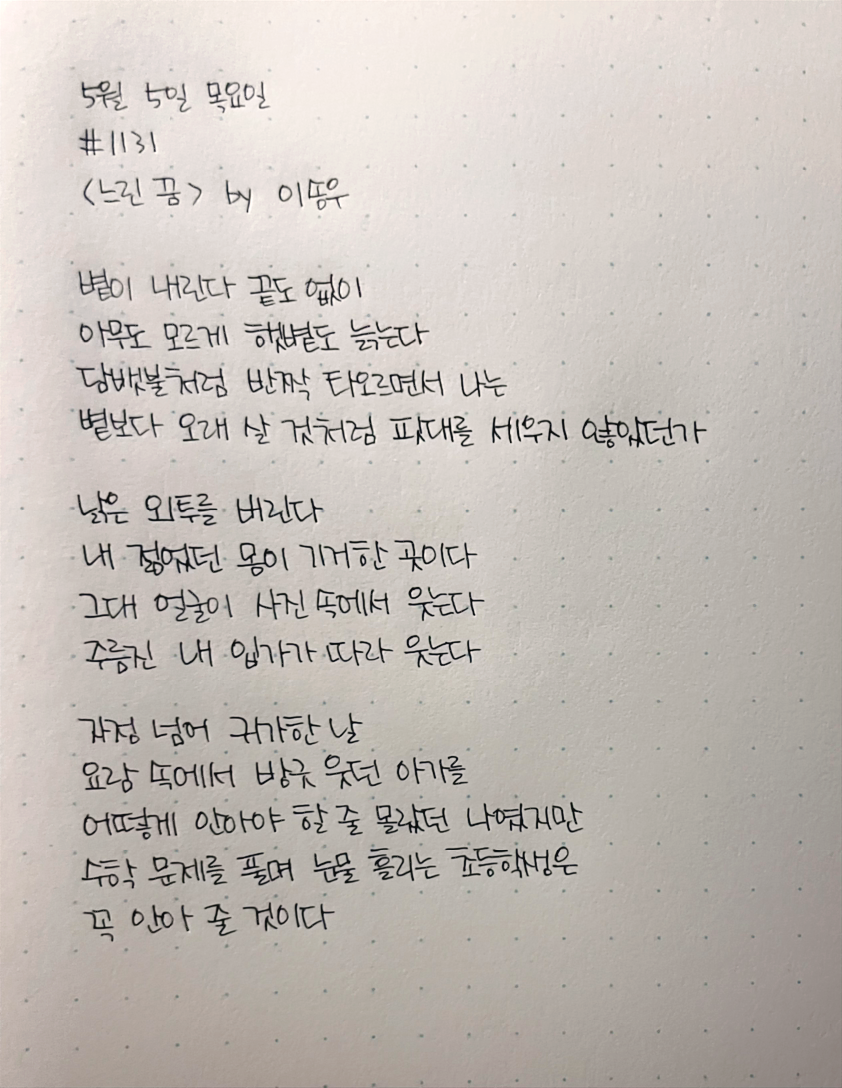 5월 5일 목요일
#1131
<느린 꿈> by 이승우
볕이 내린다 끝도 없이
아무도 모르게 햇볕도 늙는다
담뱃불처럼 반짝 타오르면서 나는
볕보다 오래 살 것처럼 핏대를 세우지 않았던가
낡은 외투를 버린다
내 젊었던 몸이 기거한 곳이다
그대 얼굴이 사진 속에서 웃는다
주름진 내 입가가 따라 웃는다
자정 넘어 귀가한 날
요람 속에서 방긋 웃던 아가를
어떻게 안아야 할 줄 몰랐던 나였지만
수학 문제를 풀며 눈물 흘리는 초등학생은
꼭 안아 줄 것이다